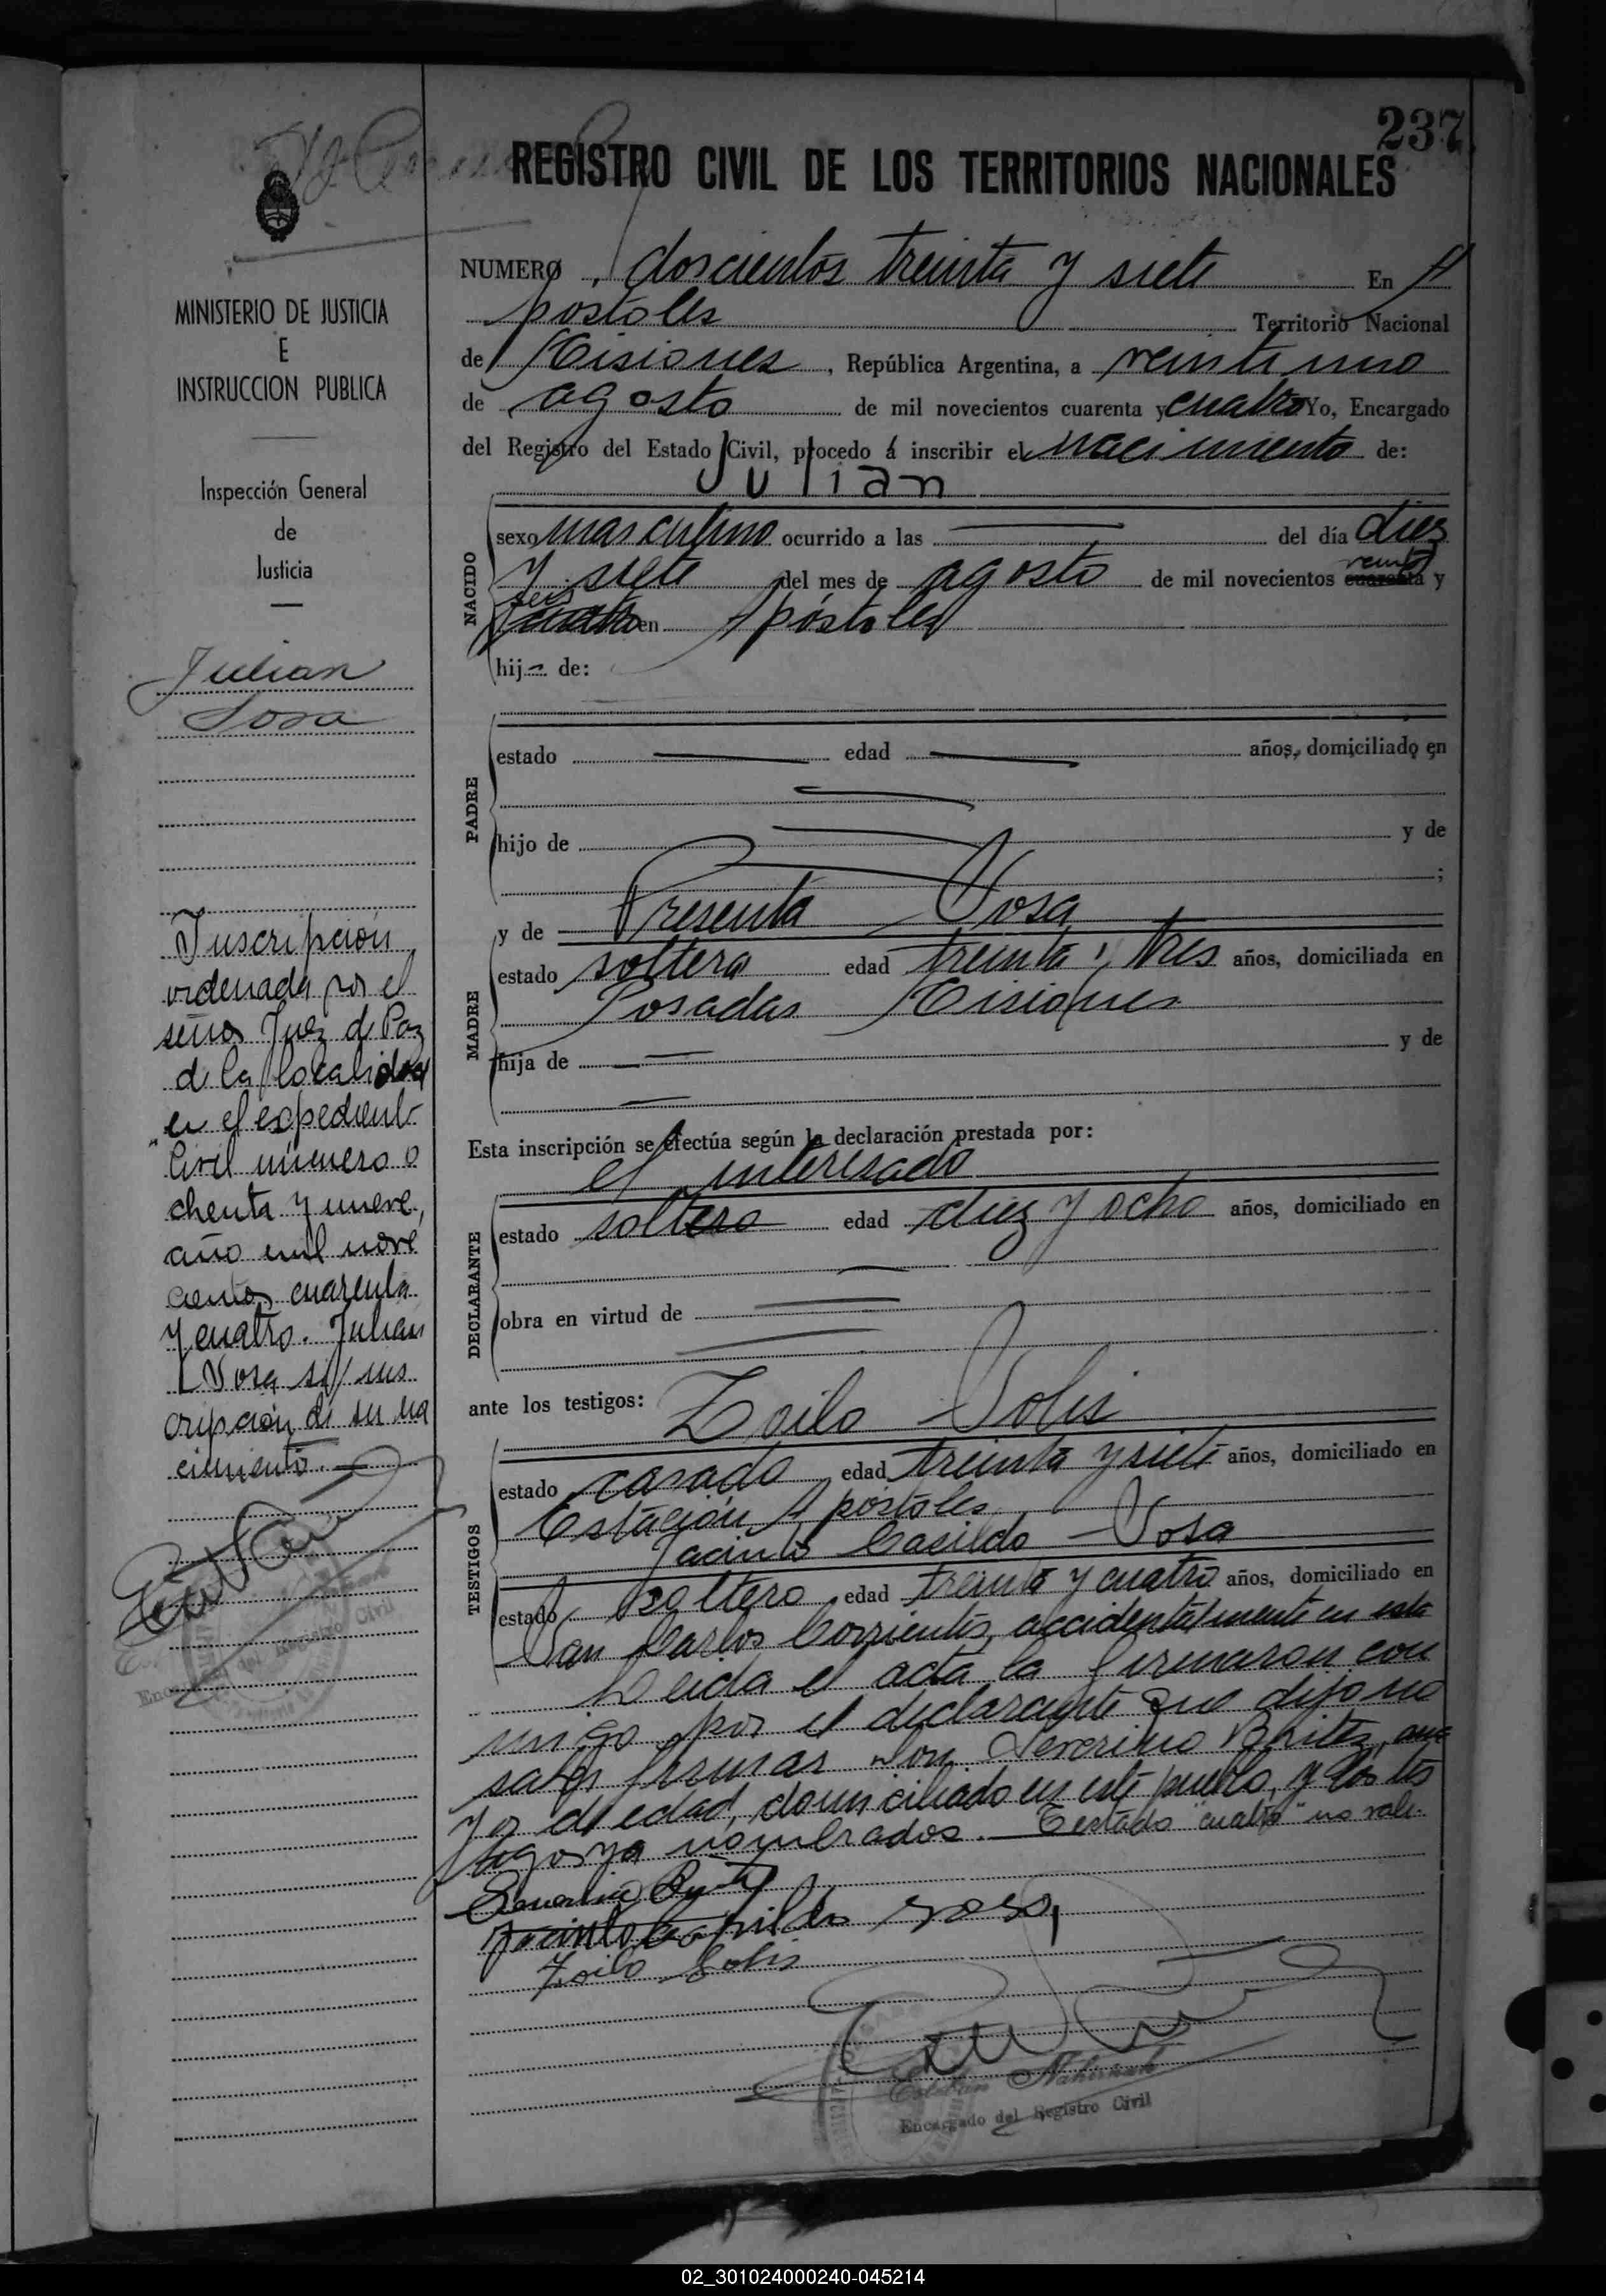 237
REGISTRO CIVIL DE LOS TERRITORIOS NACIONALES
MINISTERIO DE JUSTICIA
E
INSTRUCCION PUBLICA
Inspección General
de
Justicia
Julian
Sosa
Inscripción
ordenada por el
señor Juez de Paz
de la localidad
en el expediente
Civil número o
chenta y nueve,
año mil nove
cientos cuarenta
y cuatro. Julian
Sosa s/ ins
cripción de su na
cimiento.
NUMERO doscientos treinta y siete En A
postoles Territorio Nacional
de Misiones, República Argentina, a veintiuno
de agosto de mil novecientos cuarenta y cuatro Yo, Encargado
del Registro del Estado Civil, procedo á inscribir el nacimiento de:
Julian
NACIDO
sexo masculino ocurrido a las del día diez
y siete del mes de agosto de mil novecientos cuarenta veinte y
seis cuatro en Apóstoles
hij de:
PADRE
estado edad años, domiciliado en
hijo de y de
;
y de Presenta Sosa
MADRE
estado soltera edad treinta y tres años, domiciliada en
Posadas Misiones
hija de y de
Esta inscripción se efectúa según la declaración prestada por:
el interesado
DECLARANTE
estado soltero edad diez y ocho años, domiciliado en
obra en virtud de
ante los testigos: Zoilo Solis
TESTIGOS
estado casado edad treinta y siete años, domiciliado en
Estación Apóstoles
Jacinto Casildo Sosa
estado soltero edad treinta y cuatro años, domiciliado en
San Carlos Corrientes, accidentalmente en esta
Leida el acta la firmaron con
migo por el declarante que dijo no
saber firmar Don Severino Benitez, ma
yor de edad, domiciliado en este pueblo, y los tes
tigos ya nombrados. Testado "cuatro" no vale.
Jacinto Casildo sosa
Zoilo Solis
Esteban
Encargado del Registro Civil
02_301024000240-045214